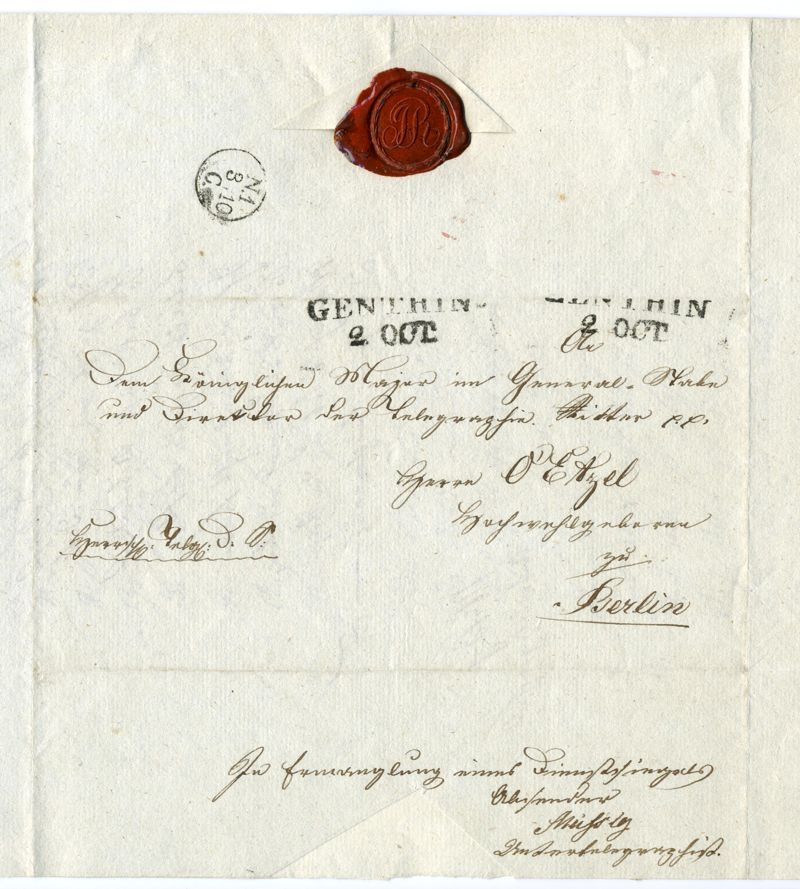 JR
N1
3/10
C.
GENTHIN
2 OCT
GENTHIN
2 OCT
An
Dem Königlichen Major im General-Stabe
und Direktor der Telegraphie. Ritter p.p.
Herrn O'Etzel
Hochwohlgeboren
zu
Berlin
Telg: D. S:
In Ermanglung eines Dienstsiegels
Absender
Mussig
Untertelegraphist.